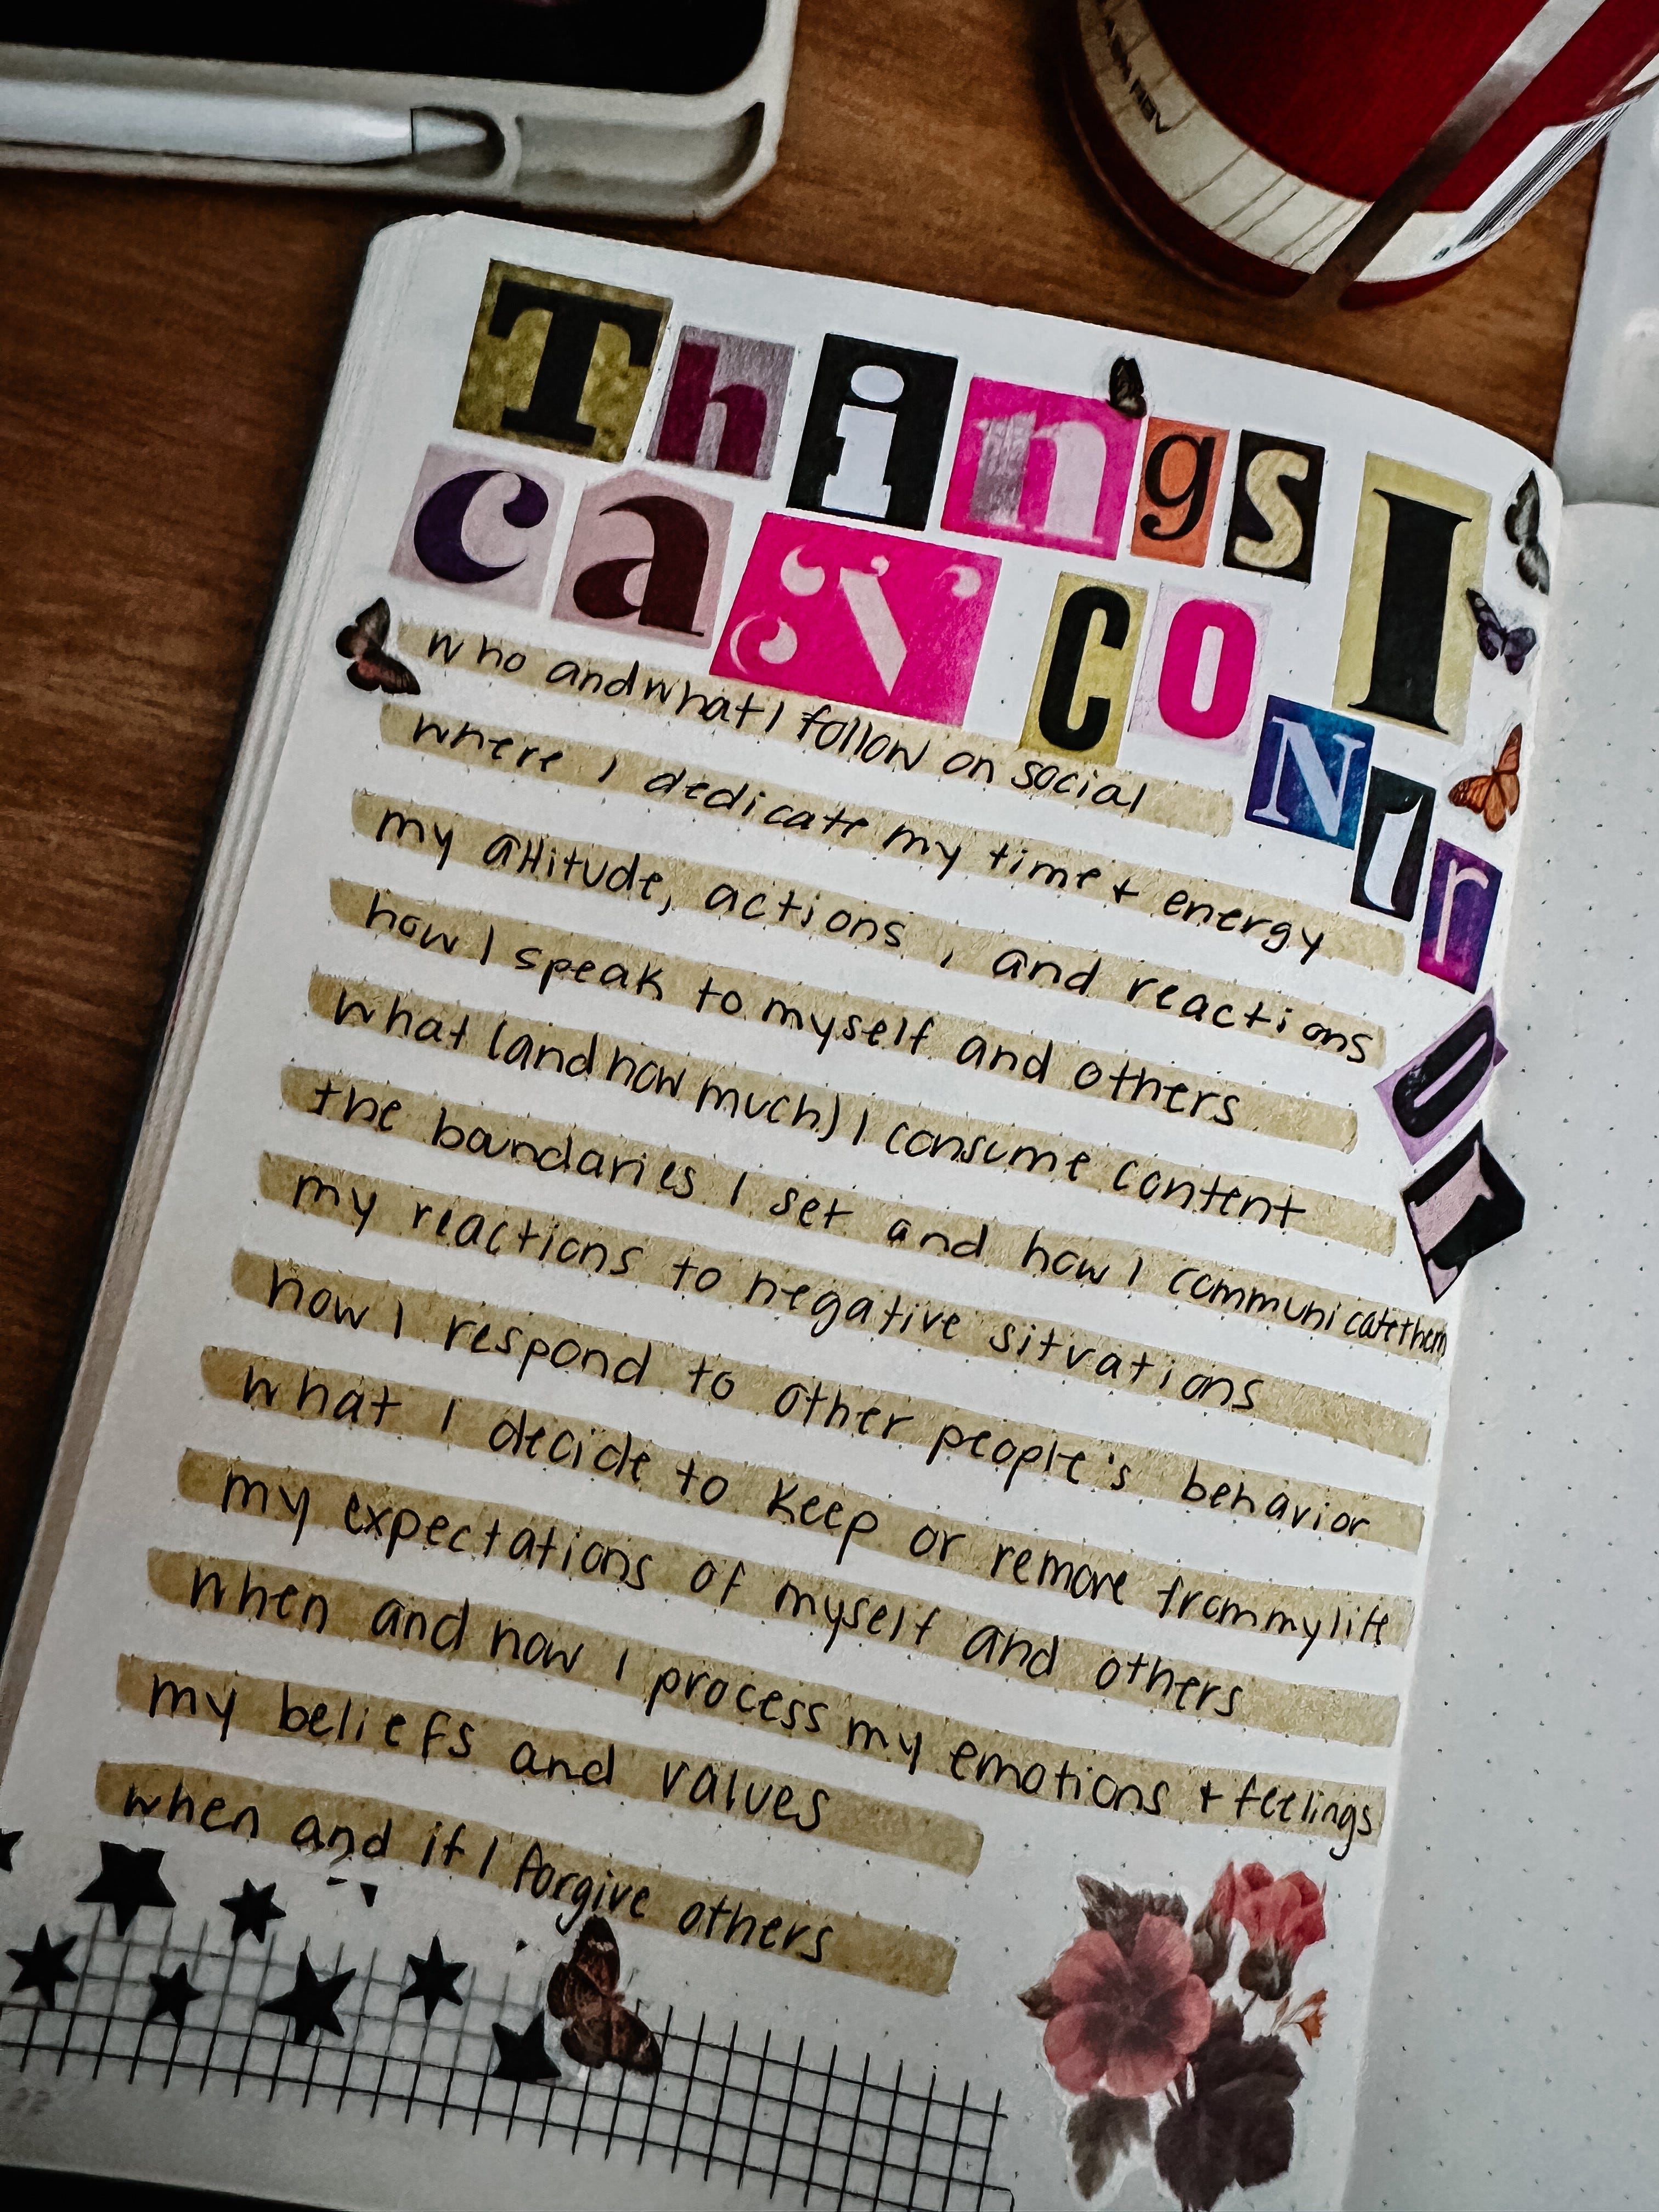 Things I
can CONTrOl
who and what I follow on social
where I dedicate my time + energy
my attitude, actions, and reactions
how I speak to myself and others
what (and how much) I consume content
the boundaries I set and how I communicate them
my reactions to negative situations
how I respond to other people's behavior
what I decide to keep or remove from my life
my expectations of myself and others
when and how I process my emotions + feelings
my beliefs and values
when and if I forgive others
22